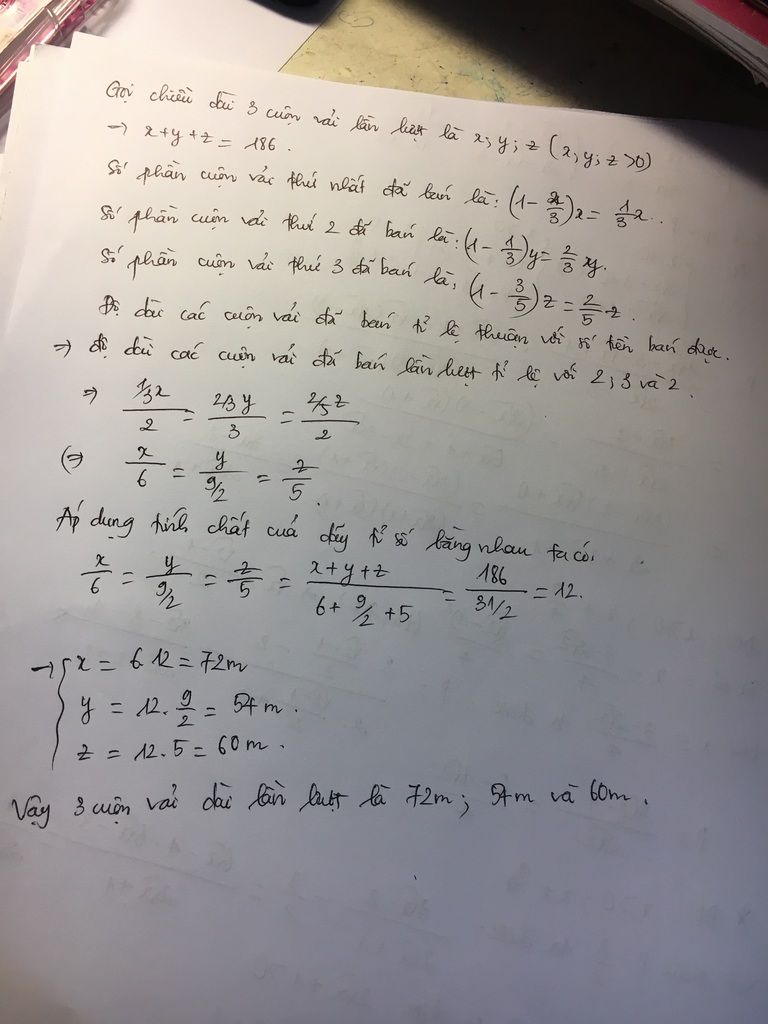 Gọi chiều dài 3 cuộn vải lần lượt là x; y; z (x; y; z >0)
→ x+y+z = 186.
Số phần cuộn vải thứ nhất đã bán là: (1 - 2/3)x = 1/3x.
Số phần cuộn vải thứ 2 đã bán là: (1 - 1/3)y = 2/3 y.
Số phần cuộn vải thứ 3 đã bán là: (1 - 3/5)z = 2/5 z.
Độ dài các cuộn vải đã bán tỉ lệ thuận với số tiền bán được.
=> độ dài các cuộn vải đã bán lần lượt tỉ lệ với 2; 3 và 2.
=> 1/3x / 2 = 2/3y / 3 = 2/5z / 2
(=> x/6 = y / 9/2 = z/5.
Áp dụng tính chất của dãy tỉ số bằng nhau ta có:
x/6 = y / 9/2 = z/5 = x+y+z / 6 + 9/2 + 5 = 186 / 31/2 = 12.
→ { x = 6.12 = 72m
y = 12. 9/2 = 54m.
z = 12.5 = 60m.
Vậy 3 cuộn vải dài lần lượt là 72m; 54m và 60m.